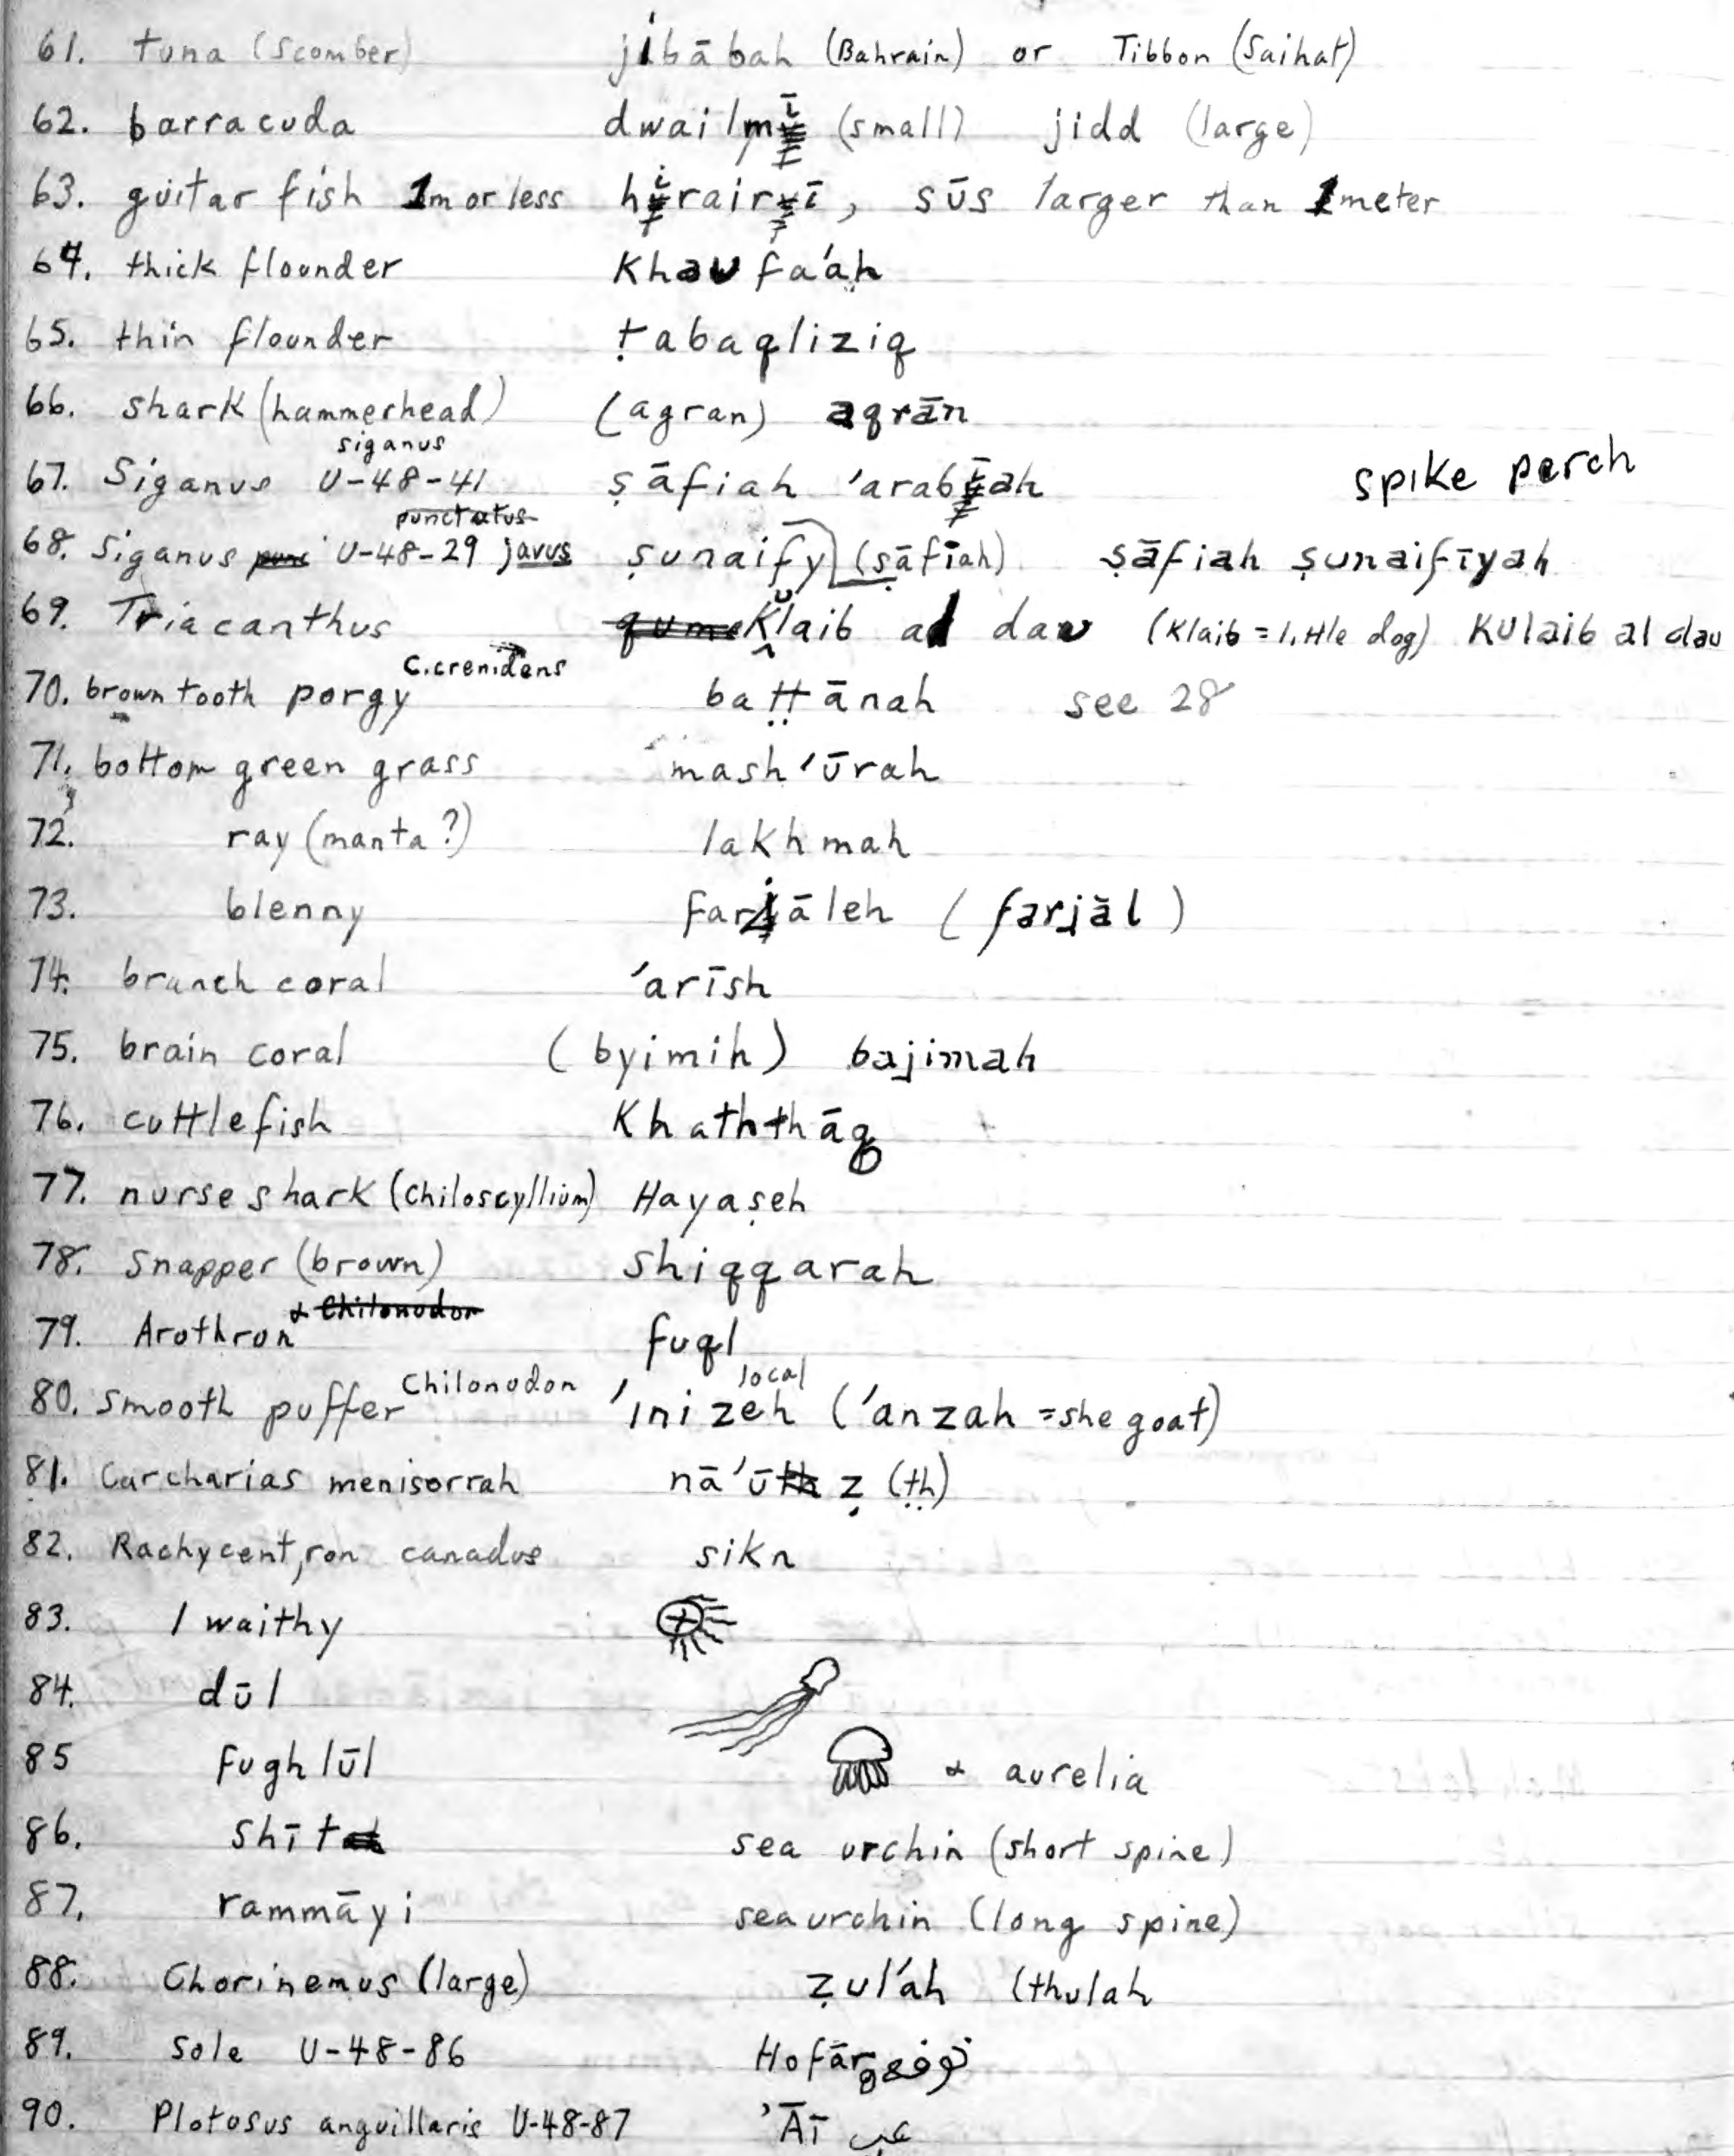 61. tuna (Scomber) jibābah (Bahrain) or Tibbon (Saihat)
62. barracuda dwailmī (small) jidd (large)
63. guitar fish 1m or less hirairī, sūs larger than 1 meter
64. thick flounder Khaufa'aḥ
65. thin flounder ṭabaqliziq
66. shark (hammerhead) (agran) aqrān
siganus
67. Siganus U-48-41 ṣāfiah 'arabīah spike perch
punctatus
68. Siganus punc U-48-29 javus ṣunaify (ṣāfiah) ṣāfiah ṣunaifīyah
69. Triacanthus qume Kŭlaib ad dau (Klaib = little dog) Kulaib al dau
C. crenidens
70. brown tooth porgy baṭṭānah see 28
71. bottom green grass mash'ūrah
72. ray (manta?) lakhmah
73. blenny farjāleh (farjāl)
74. branch coral 'arīsh
75. brain coral (byimih) bajimah
76. cuttlefish Khaththāq
77. nurse shark (Chiloscyllium) Hayaṣeh
78. Snapper (brown) shiqqarah
& Chilonodon
79. Arothron fuql
Chilonodon local
80. smooth puffer 'inizeh ('anzah = she goat)
81. Carcharias menisorrah nā'ūth ẓ (ṭḥ)
82. Rachycentron canadus sikn
83. lwaithy
84. dūl
85 Fughlūl & aurelia
86. shīt sea urchin (short spine)
87. rammāyi sea urchin (long spine)
88. Chorinemus (large) ẓul'ah (thulah
89. Sole U-48-86
90. Plotosus anguillaris U-48-87 'Āī